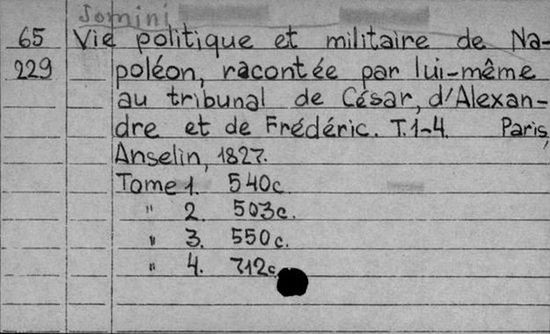 Jomini
65 Vie politique et militaire de Na-
229 poléon, racontée par lui-même
au tribunal de César, d'Alexan-
dre et de Frédéric. T.1-4. Paris,
Anselin, 1827.
Tome 1. 540c.
" 2. 503c.
" 3. 550c.
" 4. 712c.